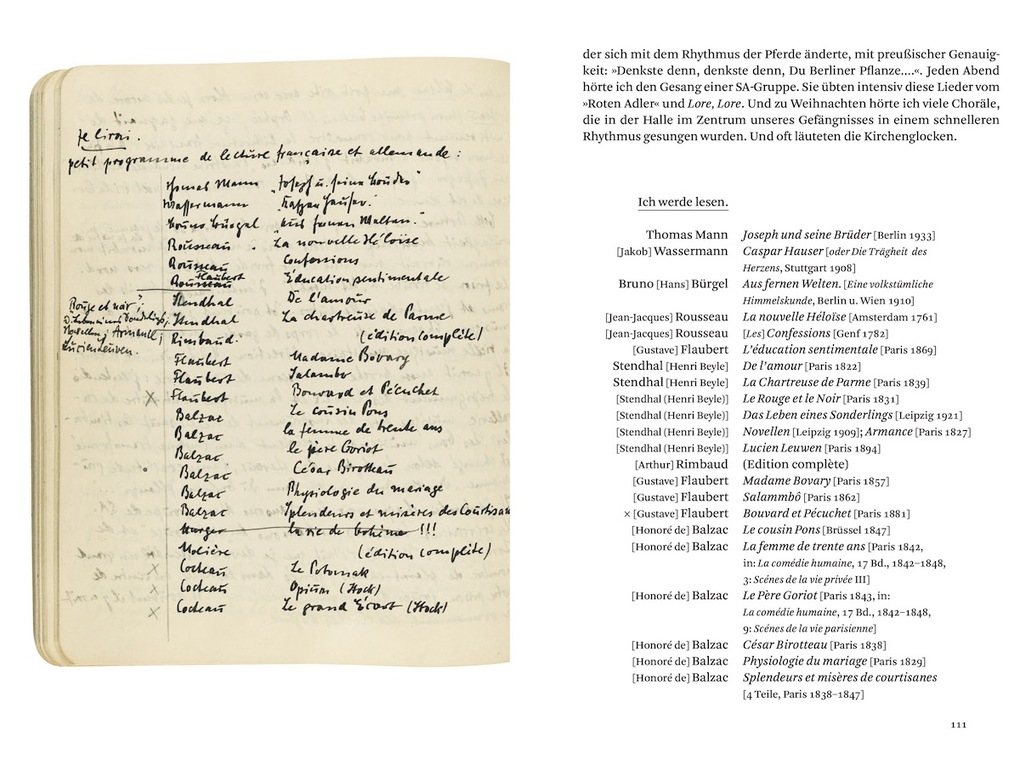 je lirai.
petit programme de lecture française et allemande :
Thomas Mann „Joseph u. seine Brüder"
Wassermann „Kaspar Hauser."
Bruno Bürgel „Aus fernen Welten."
Rousseau . La nouvelle Héloïse
Rousseau Confessions
Flaubert
Rousseau Éducation sentimentale
Stendhal De l'amour
Rouge et noir;
Stendhal La chartreuse de Parme
Novellen; Armance;
Lucien Leuven.
Rimbaud. (édition complète)
Flaubert Madame Bovary
Flaubert Salambo
x Flaubert Bouvard et Pécuchet
Balzac Le cousin Pons
Balzac la femme de trente ans
Balzac le père Goriot
Balzac César Birotteau
Balzac Physiologie du mariage
Balzac Splendeurs et misères des Courtisan
Murger la vie de bohème !!!
Molière (édition complète)
x Cocteau Le Potomak
x Cocteau Opium (Stock)
x Cocteau Le grand Écart (Stock)
der sich mit dem Rhythmus der Pferde änderte, mit preußischer Genauig-
keit: »Denkste denn, denkste denn, Du Berliner Pflanze....«. Jeden Abend
hörte ich den Gesang einer SA-Gruppe. Sie übten intensiv diese Lieder vom
»Roten Adler« und Lore, Lore. Und zu Weihnachten hörte ich viele Choräle,
die in der Halle im Zentrum unseres Gefängnisses in einem schnelleren
Rhythmus gesungen wurden. Und oft läuteten die Kirchenglocken.
Ich werde lesen.
Thomas Mann Joseph und seine Brüder [Berlin 1933]
[Jakob] Wassermann Caspar Hauser [oder Die Trägheit des
Herzens, Stuttgart 1908]
Bruno [Hans] Bürgel Aus fernen Welten. [Eine volkstümliche
Himmelskunde, Berlin u. Wien 1910]
[Jean-Jacques] Rousseau La nouvelle Héloïse [Amsterdam 1761]
[Jean-Jacques] Rousseau [Les] Confessions [Genf 1782]
[Gustave] Flaubert L'éducation sentimentale [Paris 1869]
Stendhal [Henri Beyle] De l'amour [Paris 1822]
Stendhal [Henri Beyle] La Chartreuse de Parme [Paris 1839]
[Stendhal (Henri Beyle)] Le Rouge et le Noir [Paris 1831]
[Stendhal (Henri Beyle)] Das Leben eines Sonderlings [Leipzig 1921]
[Stendhal (Henri Beyle)] Novellen [Leipzig 1909]; Armance [Paris 1827]
[Stendhal (Henri Beyle)] Lucien Leuwen [Paris 1894]
[Arthur] Rimbaud (Edition complète)
[Gustave] Flaubert Madame Bovary [Paris 1857]
[Gustave] Flaubert Salammbô [Paris 1862]
× [Gustave] Flaubert Bouvard et Pécuchet [Paris 1881]
[Honoré de] Balzac Le cousin Pons [Brüssel 1847]
[Honoré de] Balzac La femme de trente ans [Paris 1842,
in: La comédie humaine, 17 Bd., 1842–1848,
3: Scénes de la vie privée III]
[Honoré de] Balzac Le Père Goriot [Paris 1843, in:
La comédie humaine, 17 Bd., 1842–1848,
9: Scénes de la vie parisienne]
[Honoré de] Balzac César Birotteau [Paris 1838]
[Honoré de] Balzac Physiologie du mariage [Paris 1829]
[Honoré de] Balzac Splendeurs et misères de courtisanes
[4 Teile, Paris 1838–1847]
111